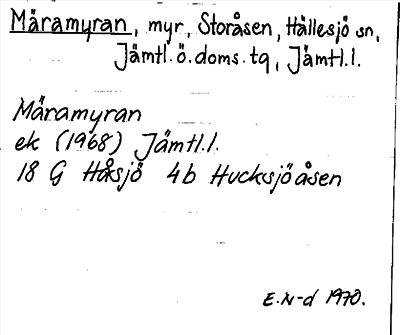 Märamyran, myr, Storåsen, Hällesjö sn,
Jämtl.ö.doms.tq, Jämtl.l.
Märamyran
ek (1968) Jämtl.l.
18 G Håsjö 4b Hucksjöåsen
E.N-d 1970.